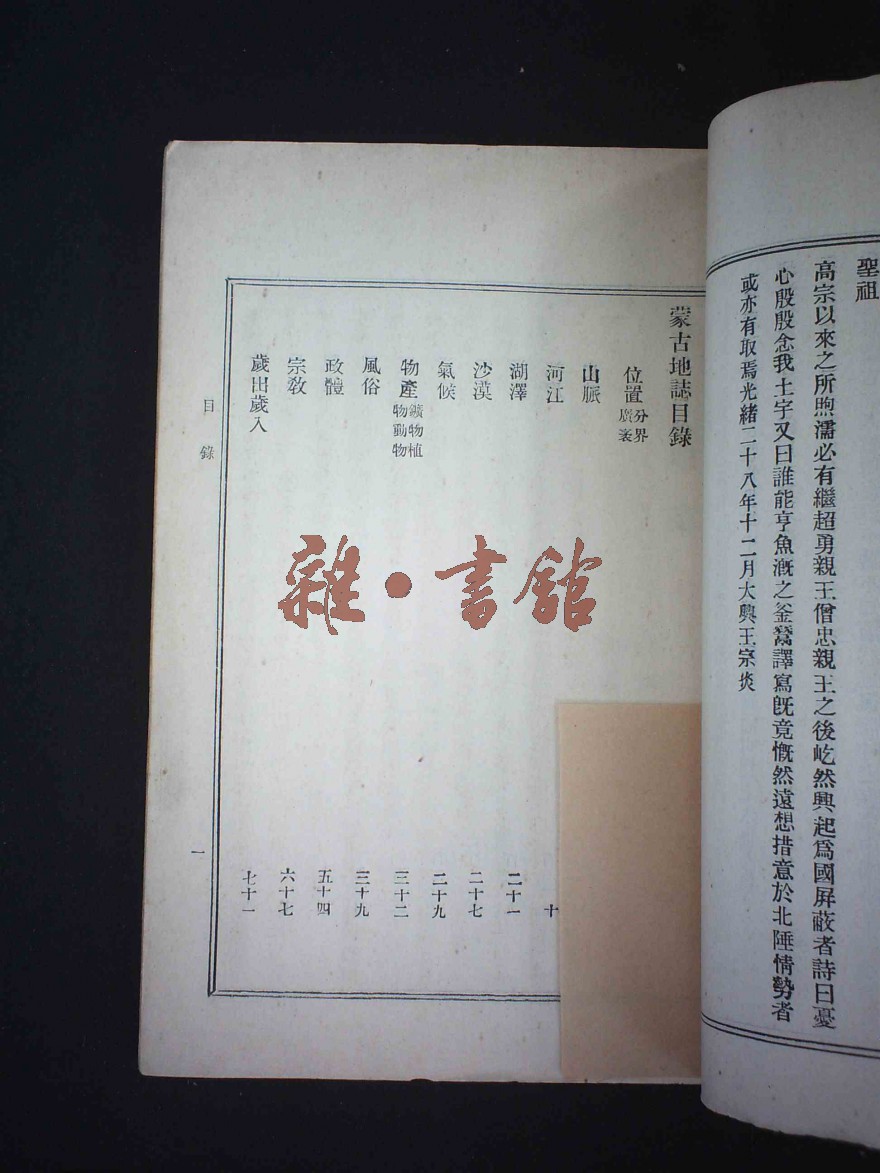 聖祖
高宗以來之所煦濡必有繼超勇親王僧忠親王之後屹然興起爲國屏蔽者詩曰憂
心殷殷念我土宇又曰誰能亨魚漑之釜鬵譯寫旣竟慨然遠想措意於北陲情勢者
或亦有取焉光緒二十八年十二月大興王宗炎
蒙古地誌目錄
位置 分界 廣袤
山脈
河江 十
湖澤 二十一
沙漠 二十七
氣候 二十九
物產 鑛物植物動物 三十二
風俗 三十九
政體 五十四
宗敎 六十七
歲出歲入 七十一
目錄 一
雜·書館